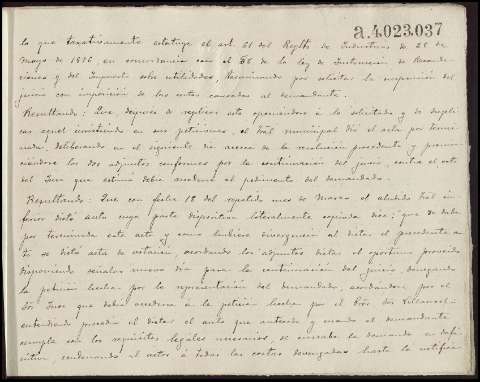 a.4023.037
lo que taxativamente estatuye el art. 61 del Reglto de Industrias de 28 de
mayo de 1896, en concordancia con el 56 de la ley de Instrucción de Recauda-
ciones y del Impuesto sobre utilidades, terminando por solicitar la suspensión del
juicio con imposición de las costas causadas al demandante.
Resultando: Que, después de replicar este oponiéndose á lo solicitado y de dupli-
car aquel insistiendo en sus peticiones, el tral municipal dió el acta por termi-
nada, deliberando en el siguiente día acerca de la resolución procedente y pronun-
ciándose los dos adjuntos conformes por la continuación del juicio, contra el voto
del Juez que estimó debia accederse al pedimento del demandado.
Resultando: Que con fecha 18 del repetido mes de Marzo el aludido tral in-
ferior dictó auto cuya parte dispositiva literalmente copiada dice: que se daba
por terminada este acto y como hubiera divergencia al dictar el precedente au-
to se dictó acta de votación, acordando los adjuntos dictar el oportuno proveido
disponiendo señalar nuevo día para la continuación del juicio, denegando
la petición hecha por la representación del demandado, acordándose por el
Sor Juez que debía accederse a la petición hecha por el Prôr Sor
entendiendo procedía el dictar el auto que antecede y cuando el demandante
cumpla con los requisitos legales necesarios, se cursará la demanda en defi-
nitiva, condenando al actor á todas las costas devengadas hasta la notifica-